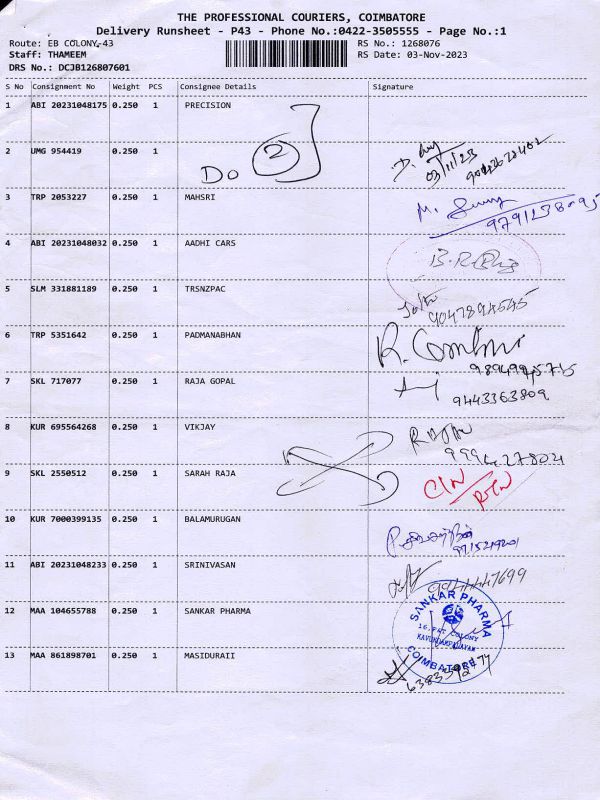 THE PROFESSIONAL COURIERS, COIMBATORE
Delivery Runsheet - P43 - Phone No.:0422-3505555 - Page No.:1
Route: EB COLONY-43 RS No.: 1268076
Staff: THAMEEM RS Date: 03-Nov-2023
DRS No.: DCJB126807601
S No Consignment No Weight PCS Consignee Details Signature
1 ABI 20231048175 0.250 1 PRECISION
2 UMG 954419 0.250 1
Do 2
03/11/23
3 TRP 2053227 0.250 1 MAHSRI
4 ABI 20231048032 0.250 1 AADHI CARS
5 SLM 331881189 0.250 1 TRSNZPAC
9047894545
6 TRP 5351642 0.250 1 PADMANABHAN
7 SKL 717077 0.250 1 RAJA GOPAL
9443363809
8 KUR 695564268 0.250 1 VIKJAY
9994427804
9 SKL 2550512 0.250 1 SARAH RAJA
10 KUR 7000399135 0.250 1 BALAMURUGAN
11 ABI 20231048233 0.250 1 SRINIVASAN
9944447699
12 MAA 104655788 0.250 1 SANKAR PHARMA
SANKAR PHARMA
COIMBATORE
13 MAA 861898701 0.250 1 MASIDURAII